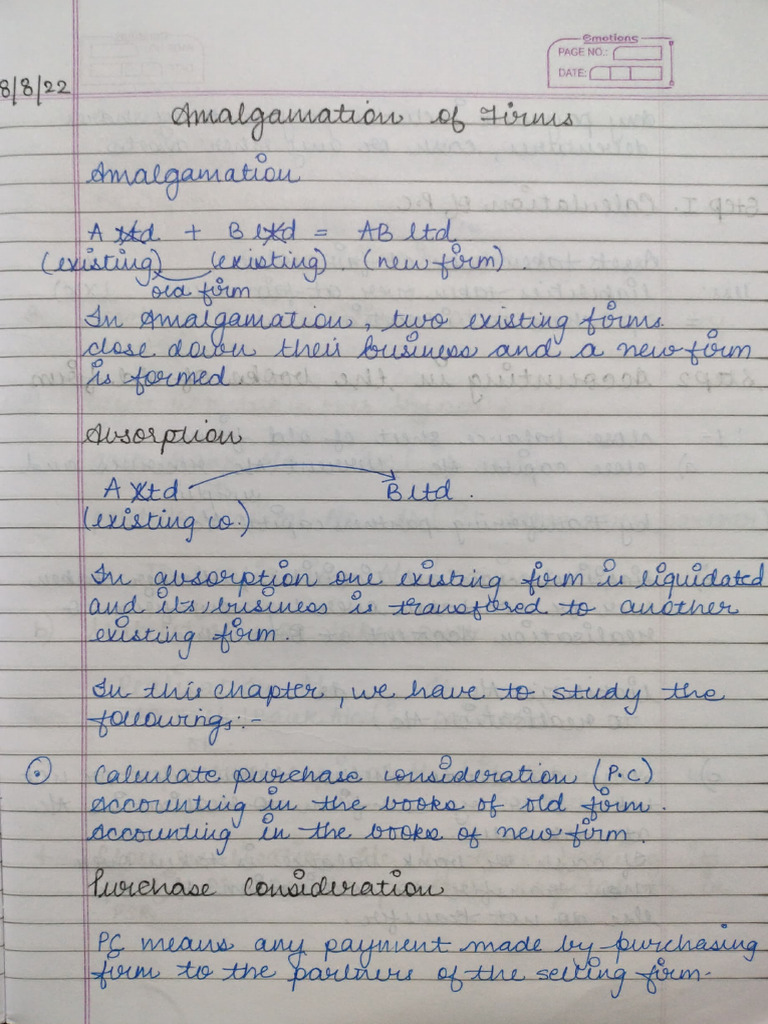 emotions
PAGE NO.:
DATE:
8/8/22
Amalgamation of Firms
Amalgamation
A Ltd + B Ltd = AB Ltd
(existing) (existing) (new firm)
old firm
In Amalgamation, two existing firms
close down their business and a new firm
is formed
Absorption
A Ltd B Ltd.
(existing co.)
In absorption one existing firm is liquidated
and its business is transfered to another
existing firm.
In this chapter, we have to study the
followings:-
Calculate purchase consideration (P.C)
Accounting in the books of old firm.
Accounting in the books of new firm.
Purchase Consideration
PC means any payment made by purchasing
firm to the partners of the selling firm.